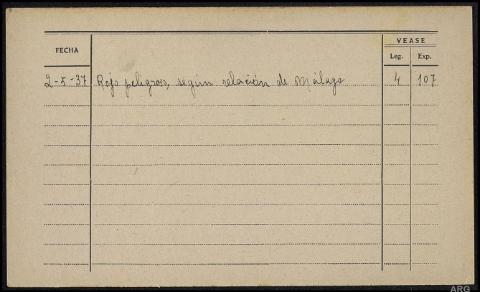 VEASE
FECHA Leg. Exp.
2-5-37 Rojo peligroso, según relación de Málaga 4 107
ARG